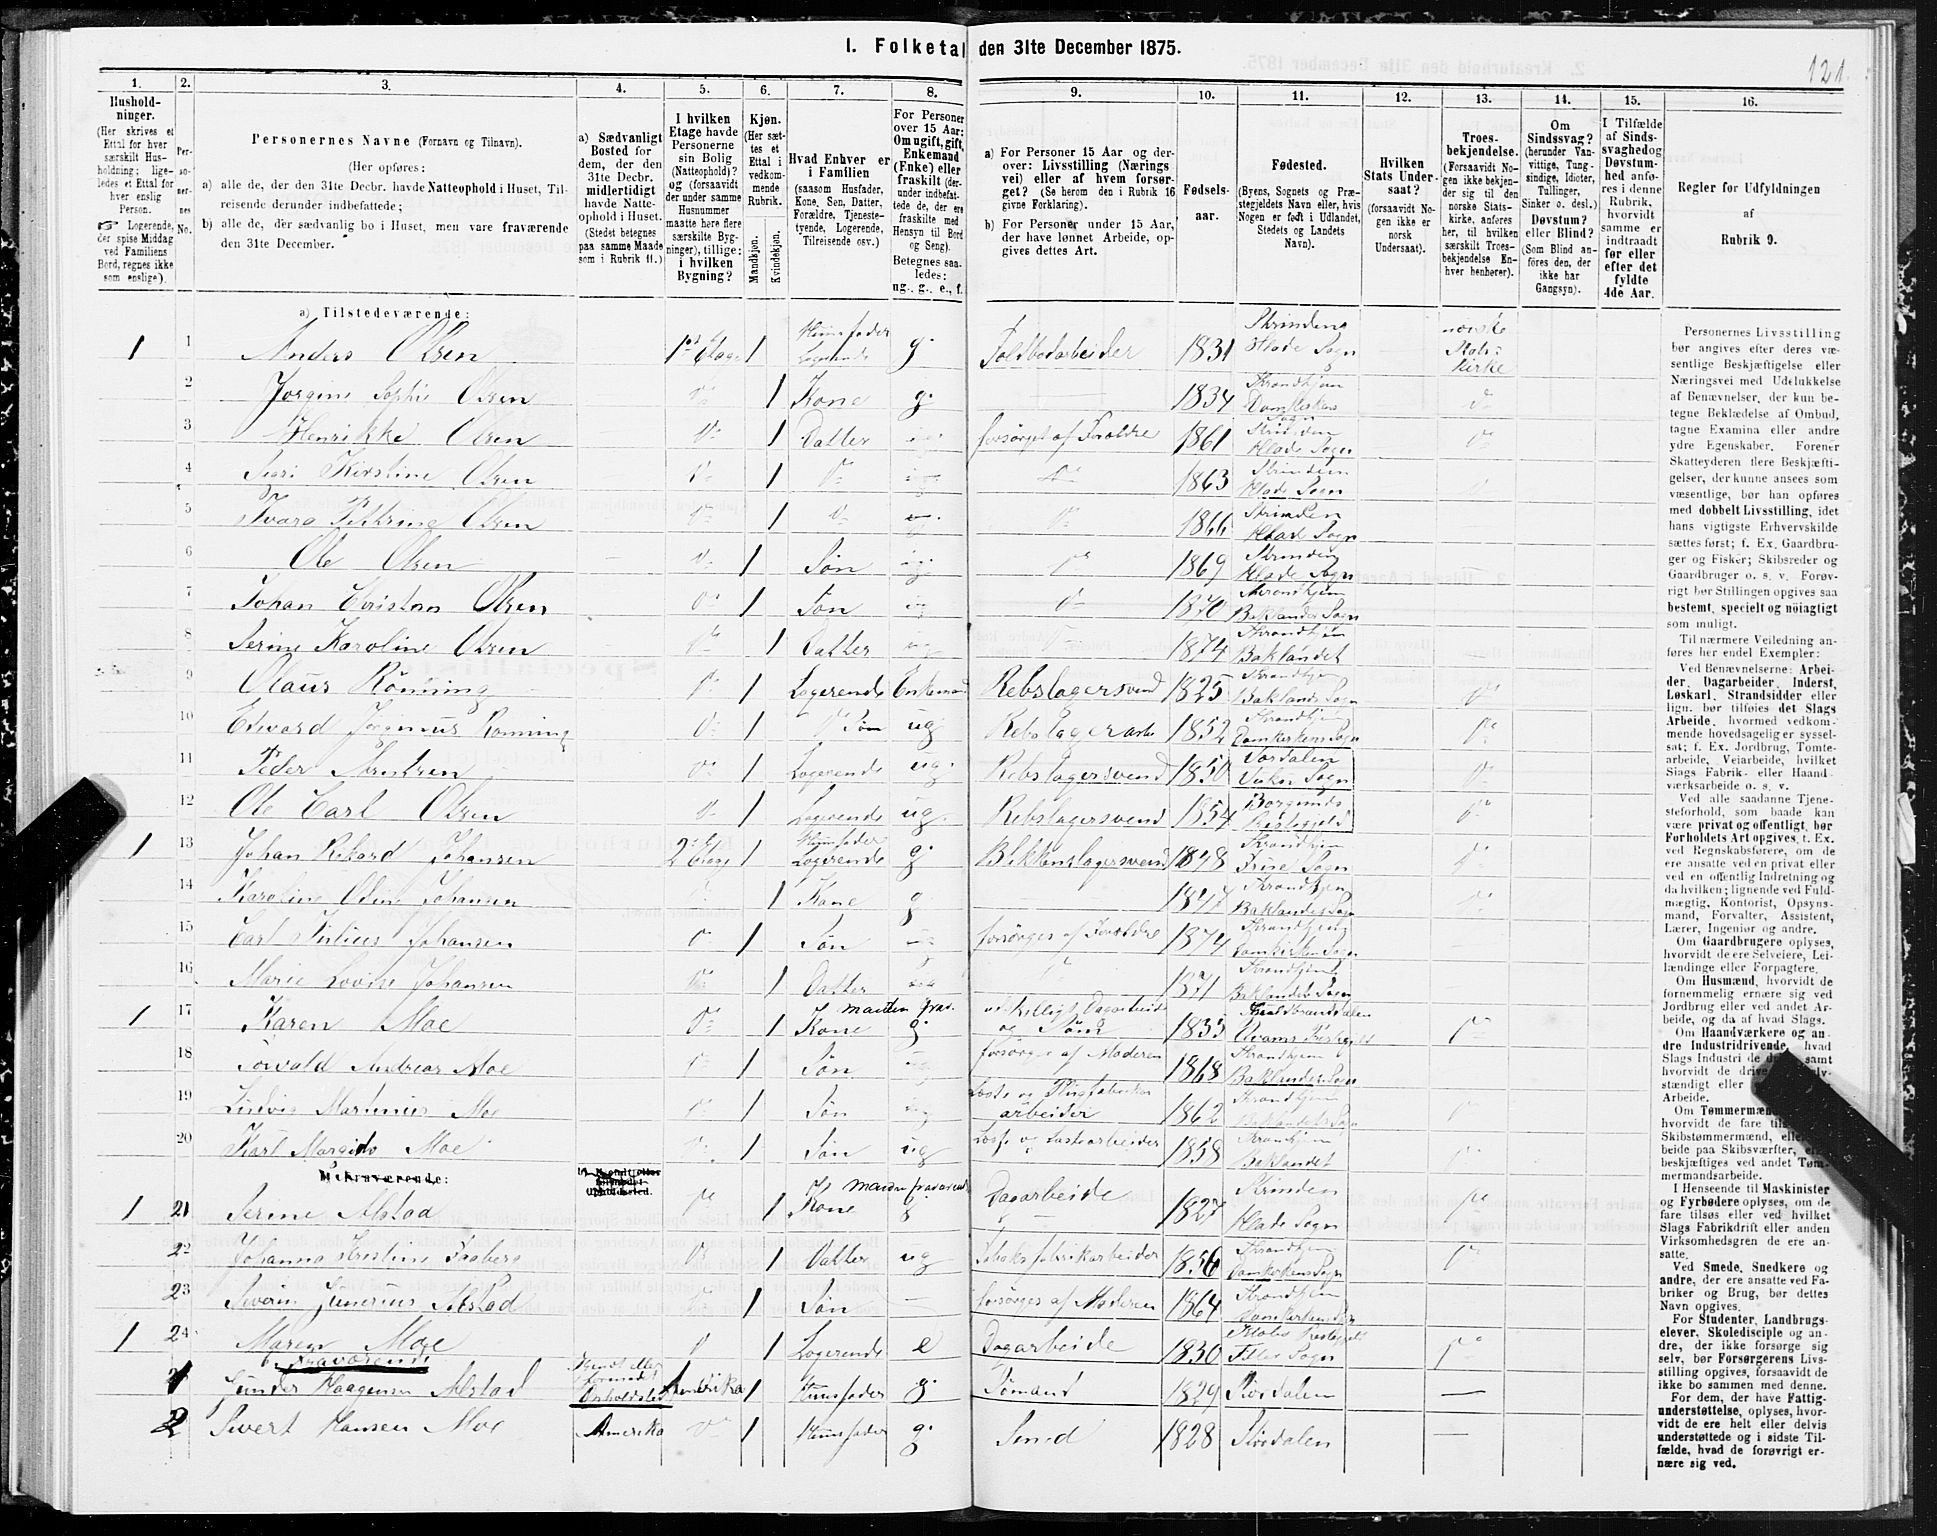 I. Folketal den 31te December 1875.
121.
1.
Husholdninger.
(Her skrives et Ettal for hver særskilt Husholdning; ligeledes et Ettal for hver enslig Person.
☞ Logerende, der spise Middag ved Familiens Bord, regnes ikke som enslige).
2.
Personernes No.
3.
Personernes Navne (Fornavn og Tilnavn).
(Her opføres:
a) alle de, der den 31te Decbr. havde Natteophold i Huset, Tilreisende derunder indbefattede;
b) alle de, der sædvanlig bo i Huset, men vare fraværende den 31te December.
4.
a) Sædvanligt Bosted for dem, der den 31te Decbr. midlertidigt havde Natteophold i Huset. (Stedet betegnes paa samme Maade som i Rubrik 11.)
5.
I hvilken Etage havde Personerne sin Bolig (Natteophold)? og (forsaavidt der under samme Husnummer maatte høre flere særskilte Bygninger), tillige: i hvilken Bygning?
6.
Kjøn.
(Her sættes et Ettal i vedkommende Rubrik.
Mandkjøn.
Kvindekjøn.
7.
Hvad Enhver er i Familien
(saasom Husfader, Kone, Søn, Datter, Forældre, Tjenestetyende, Logerende, Tilreisende osv.)
8.
For Personer over 15 Aar: Om ugift, gift, Enkemand (Enke) eller fraskilt (derunder indbefattede de, der ere fraskilte med Hensyn til Bord og Seng).
Betegnes saaledes: ug., g., e., f.
9.
a) For Personer 15 Aar og derover: Livsstilling (Næringsvei) eller af hvem forsørget? (Se herom den i Rubrik 16 givne Forklaring).
b) For Personer under 15 Aar, der have lønnet Arbeide, opgives dettes Art.
10.
Fødselsaar.
11.
Fødested.
(Byens, Sognets og Præstegjeldets Navn, eller, hvis Nogen er født i Udlandet, Stedets og Landets Navn).
12.
Hvilken Stats Undersaat?
(forsaavidt Nogen ikke er norsk Undersaat).
13.
Troesbekjendelse.
(Forsaavidt Nogen ikke bekjender sig til den norske Statskirke, anføres her, til hvilken særskilt Troesbekjendelse Enhver henhører).
14.
Om Sindssvag? (herunder Vanvittige, Tungsindige, Idioter, Tullinger, Sinker o. desl.) Døvstum? eller Blind? (Som Blind anføres den, der ikke har Gangsyn).
15.
I Tilfælde af Sindssvaghed og Døvstumhed anføres i denne Rubrik, hvorvidt samme er indtraadt før eller efter det fyldte 4de Aar.
16.
Regler for Udfyldningen af Rubrik 9.
a) Tilstedeværende:
1 1 Anders Olsen 1ste Etage 1 Huusfader Logerende g. Toldbodarbeider 1831 Strinden Hlade Sogn norske Stats Kirke
2 Jørgine Sophie Olsen Do 1 Kone g. 1834 Throndhjem Domkirkens Sogn Do
3 Henrikke Olsen Do 1 Datter forsørget af Forældre 1861 Strinden Hlade Sogn Do
4 Kirstine Olsen Do 1 Do 1863 Strinden Hlade Sogn
5 Olsen Do 1 Do Do 1866 Strinden Hlade Sogn
6 Ole Olsen Do 1 Søn Do 1869 Strinden Hlade Sogn
7 Johan Christian Olsen Do 1 Søn Do 1870 Throndhjem Baklandets Sogn
8 Serine Karoline Olsen Do 1 Datter Do 1874 Throndhjem Baklandet
9 Olaus Rönning Do 1 Logerende Enkemand Rebslagersvend 1825 Throndhjem Baklandets Sogn Do
10 Edward Jørginus Rønning Do 1 Do Søn ug Rebslagerarb 1852 Throndhjem Domkirkens Sogn Do
11 Peder Do 1 Logerende ug. Rebslagersvend 1850 Værdalen Vuku Sogn Do
12 Ole Carl Olsen Do 1 Logerende ug. Rebslagersvend 1854 Borgunds Præstegjeld Do
1 13 Johan Rikard Johansen 2den Etage 1 Huusfader Logerende g. Blikkenslagersvend 1848 Throndhjem Frue Sogn Do
14 Karoline Odine Johansen 1 Kone g 1847 Throndhjem Baklandets Sogn Do
15 Carl Julius Johansen Do 1 Søn forsørges af Forældre 1874 Throndhjem
16 Marie Lovise Johansen Do 1 Datter Do 1871 Throndhjem Baklandets Sogn
1 17 Karen Moe Do 1 Kone manden frav. g. Dagarbeide og 1835 Guldbrandsdalen Qvams Præstegjeld Do
18 Torvald Andreas Moe Do 1 Søn forsørges af Moderen 1868 Throndhjem Baklandets Sogn
19 Ludvig Martinius Moe Do 1 Søn arbeider 1862 Throndhjem Baklandets Sogn Do
20 Karl Moe Do 1 Søn ug Losse og Lastearbeider 1858 Throndhjem Baklandet
b) Fraværende:
b) Kjendt eller formodet Opholdssted.
1 21 Serine Alstad Do 1 Kone Manden fraværend g Dagarbeide 1827 Strinden Hlade Sogn Do
22 Johanna Kristine Do 1 Datter ug Tobaksfabrikarbeider 1856 Throndhjem Domkirkens Sogn Do
23 Sverin Junerius Alstad Do 1 Søn forsørges af Moderen 1864 Throndhjem Domkirkens Sogn
1 24 Maren Moe Do 1 Logerende e Dagarbeide 1830 Sogn Do
b. Fraværende
Kjendt eller formodet Opholdssted
1 Gunder Haagensen Alstad Amerika 1 Huusfader g. Sømand 1829 Stördalen
2 Sivert Hansen Moe Amerika Do 1 Huusfader g. Smed 1828 Stördalen
Personernes Livsstilling bør angives efter deres væsentlige Beskjæftigelse eller Næringsvei med Udelukkelse af Benævnelser, der kun betegne Beklædelse af Ombud, tagne Examina eller andre ydre Egenskaber. Forener Skatteyderen flere Beskjæftigelser, der kunne ansees som væsentlige, bør han opføres med dobbelt Livsstilling, idet hans vigtigste Erhvervskilde sættes først; f. Ex. Gaardbruger og Fisker; Skibsreder og Gaardbruger o. s. v. Forøvrigt bør Stillingen opgives saa bestemt, specielt og nöiagtigt som muligt.
Til nærmere Veiledning anføres her endel Exempler:
Ved Benævnelserne: Arbeider, Dagarbeider, Inderst, Løskarl, Strandsidder eller lign. bør tilføies det Slags Arbeide, hvormed vedkommende hovedsagelig er sysselsat; f. Ex. Jordbrug, Tomtearbeide, Veiarbeide, hvilket Slags Fabrik- eller Haandværksarbeide o. s. v.
Ved alle saadanne Tjenesteforhold, som baade kan være privat og offentligt, bør Forholdets Art opgives, t. Ex. ved Regnskabsførere, om de ere ansatte ved en privat eller ved en offentlig Indretning og da hvilken; lignende ved Fuldmægtig, Kontorist, Opsynsmand, Forvalter, Assistent, Lærer, Ingeniør og andre.
Om Gaardbrugere oplyses, hvorvidt de ere Selveiere, Leilændinge eller Forpagtere.
Om Husmænd, hvorvidt de fornemmelig ernære sig ved Jordbrug eller ved andet Arbeide, og da af hvad Slags.
Om Haandværkere og andre Industridrivende, hvad Slags Industri de samt hvorvidt de drive
Arbeide.
Om Tømmermænd hvorvidt de fare Skibstømmermænd, beide paa Skibsværfter, beskjæftiges ved andet Tømmermandsarbeide.
I Henseende til Maskinister og Fyrbødere oplyses, om de fare tilsøs eller ved hvilket Slags Fabrikdrift eller anden Virksomhedsgren de ere ansatte.
Ved Smede, Snedkere og andre, der ere ansatte ved Fabriker og Brug, bør dettes Navn opgives.
For Studenter, Landbrugselever, Skoledisciple og andre, der ikke forsørge sig selv, bør Forsørgerens Livsstilling opgives, forsaavidt de ikke bo sammen med denne.
For dem, der have Fattigunderstøttelse, oplyses, hvorvidt de ere helt eller delvis understøttede og i sidste Tilfælde, hvad de forøvrigt ernære sig ved.